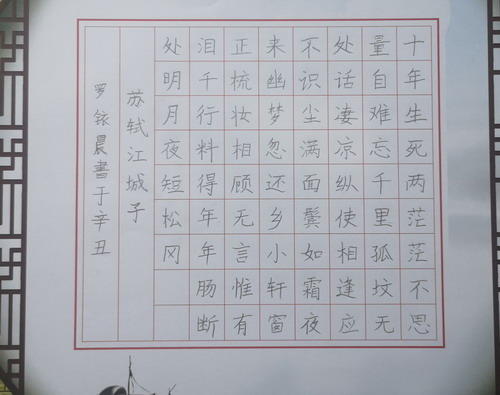 十年生死两茫茫不思
量自难忘千里孤坟无
处话凄凉纵使相逢应
不识尘满面鬓如霜夜
来幽梦忽还乡小轩窗
正梳妆相顾无言惟有
泪千行料得年年肠断
处明月夜短松冈
苏轼江城子
罗铱晨書于辛丑